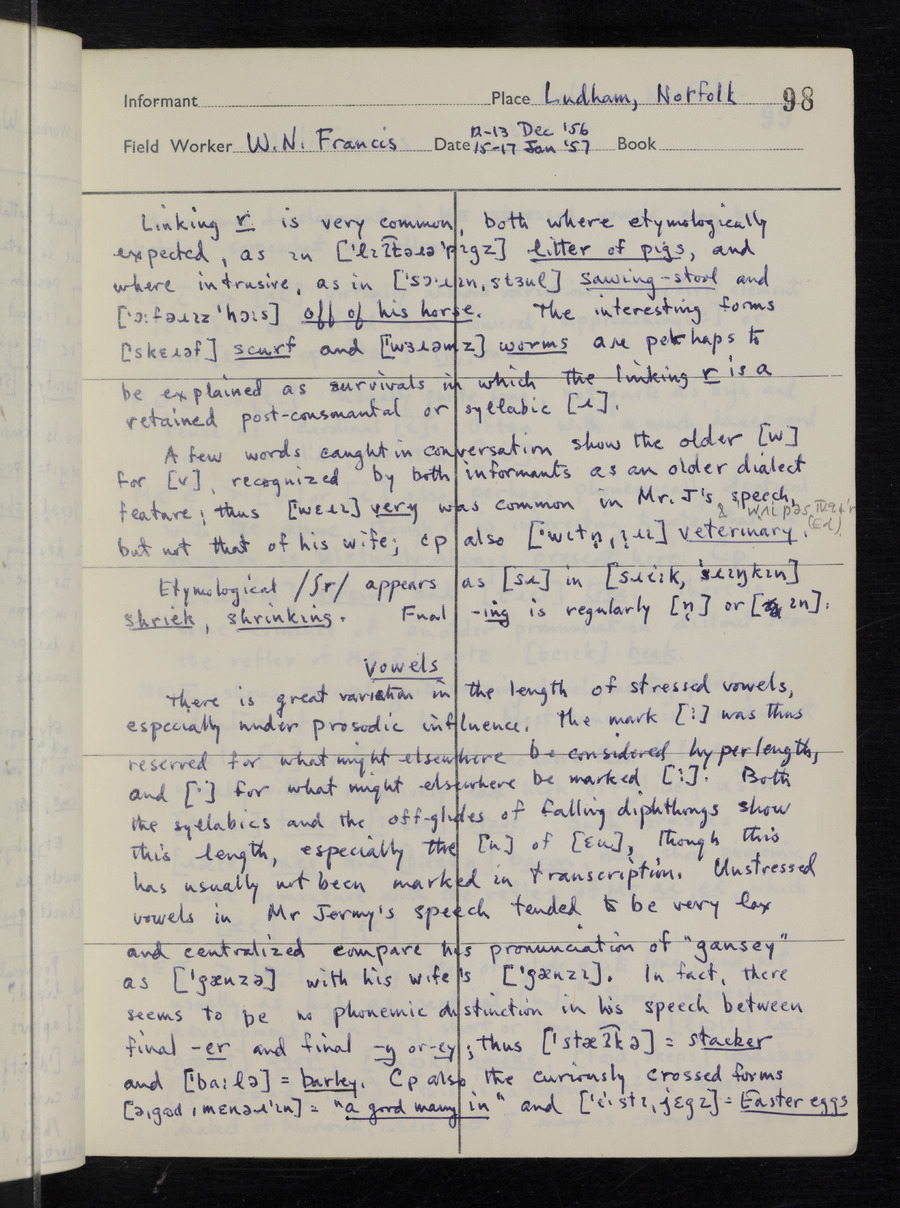 Informant Place Ludham, Norfolk 98
Field Worker W.N. Francis Date 12-13 Dec '56 15-17 Jan '57 Book
Linking r is very common, both where etymologically
expected, as in ['lɪʔ͡təɹə'pɪgz] litter of pigs, and
where intrusive, as in ['sɔ·ɹɪn,stɜul] sawing-stool and
['ɔ:fəɹɪz 'hɔ:s] off of his horse. The interesting forms
['skɛɹəf] scurf and ['wɜɹəmz] worms are perhaps to
be explained as survivals in which the linking r is a
retained post-consonantal or syllabic [ɹ].
A few words caught in conversation show the older [w]
for [v], recognized by both informants as an older dialect
feature; thus ['wɛɹɪ] very was common in Mr. J's speech,
but not that of his wife; cp also veterinary.
&
(Ed)
Etymological /ʃr/ appears as [sɹ] in [sɹi:ɪk, 'sɹɪŋkɪn]
shriek, shrinking. Final -ing is regularly [n̩] or [ɪn].
Vowels
There is great variation in the length of stressed vowels,
especially under prosodic influence. The mark [:] was thus
reserved for what might elsewhere be considered hyperlength,
and [·] for what might elsewhere be marked [:]. Both
the syllabics and the off-glides of falling diphthongs show
this length, especially the [u] of [ɛu], though this
has usually not been marked in transcription. Unstressed
vowels in Mr Jermy's speech tended to be very lax
and centralized compare his pronunciation of "gansey"
as ['gænzə] with his wife's ['gænzɪ]. In fact, there
seems to be no phonemic distinction in his speech between
final -er and final -y or -ey; thus ['stæʔ͡kə] = stacker
and ['ba:lə] = barley. Cp also the curiously crossed forms
[ə,gʊd ,mɛnəɹ'ɪn] = "a good many in" and ['i·stɪ,jɛgz] = Easter eggs